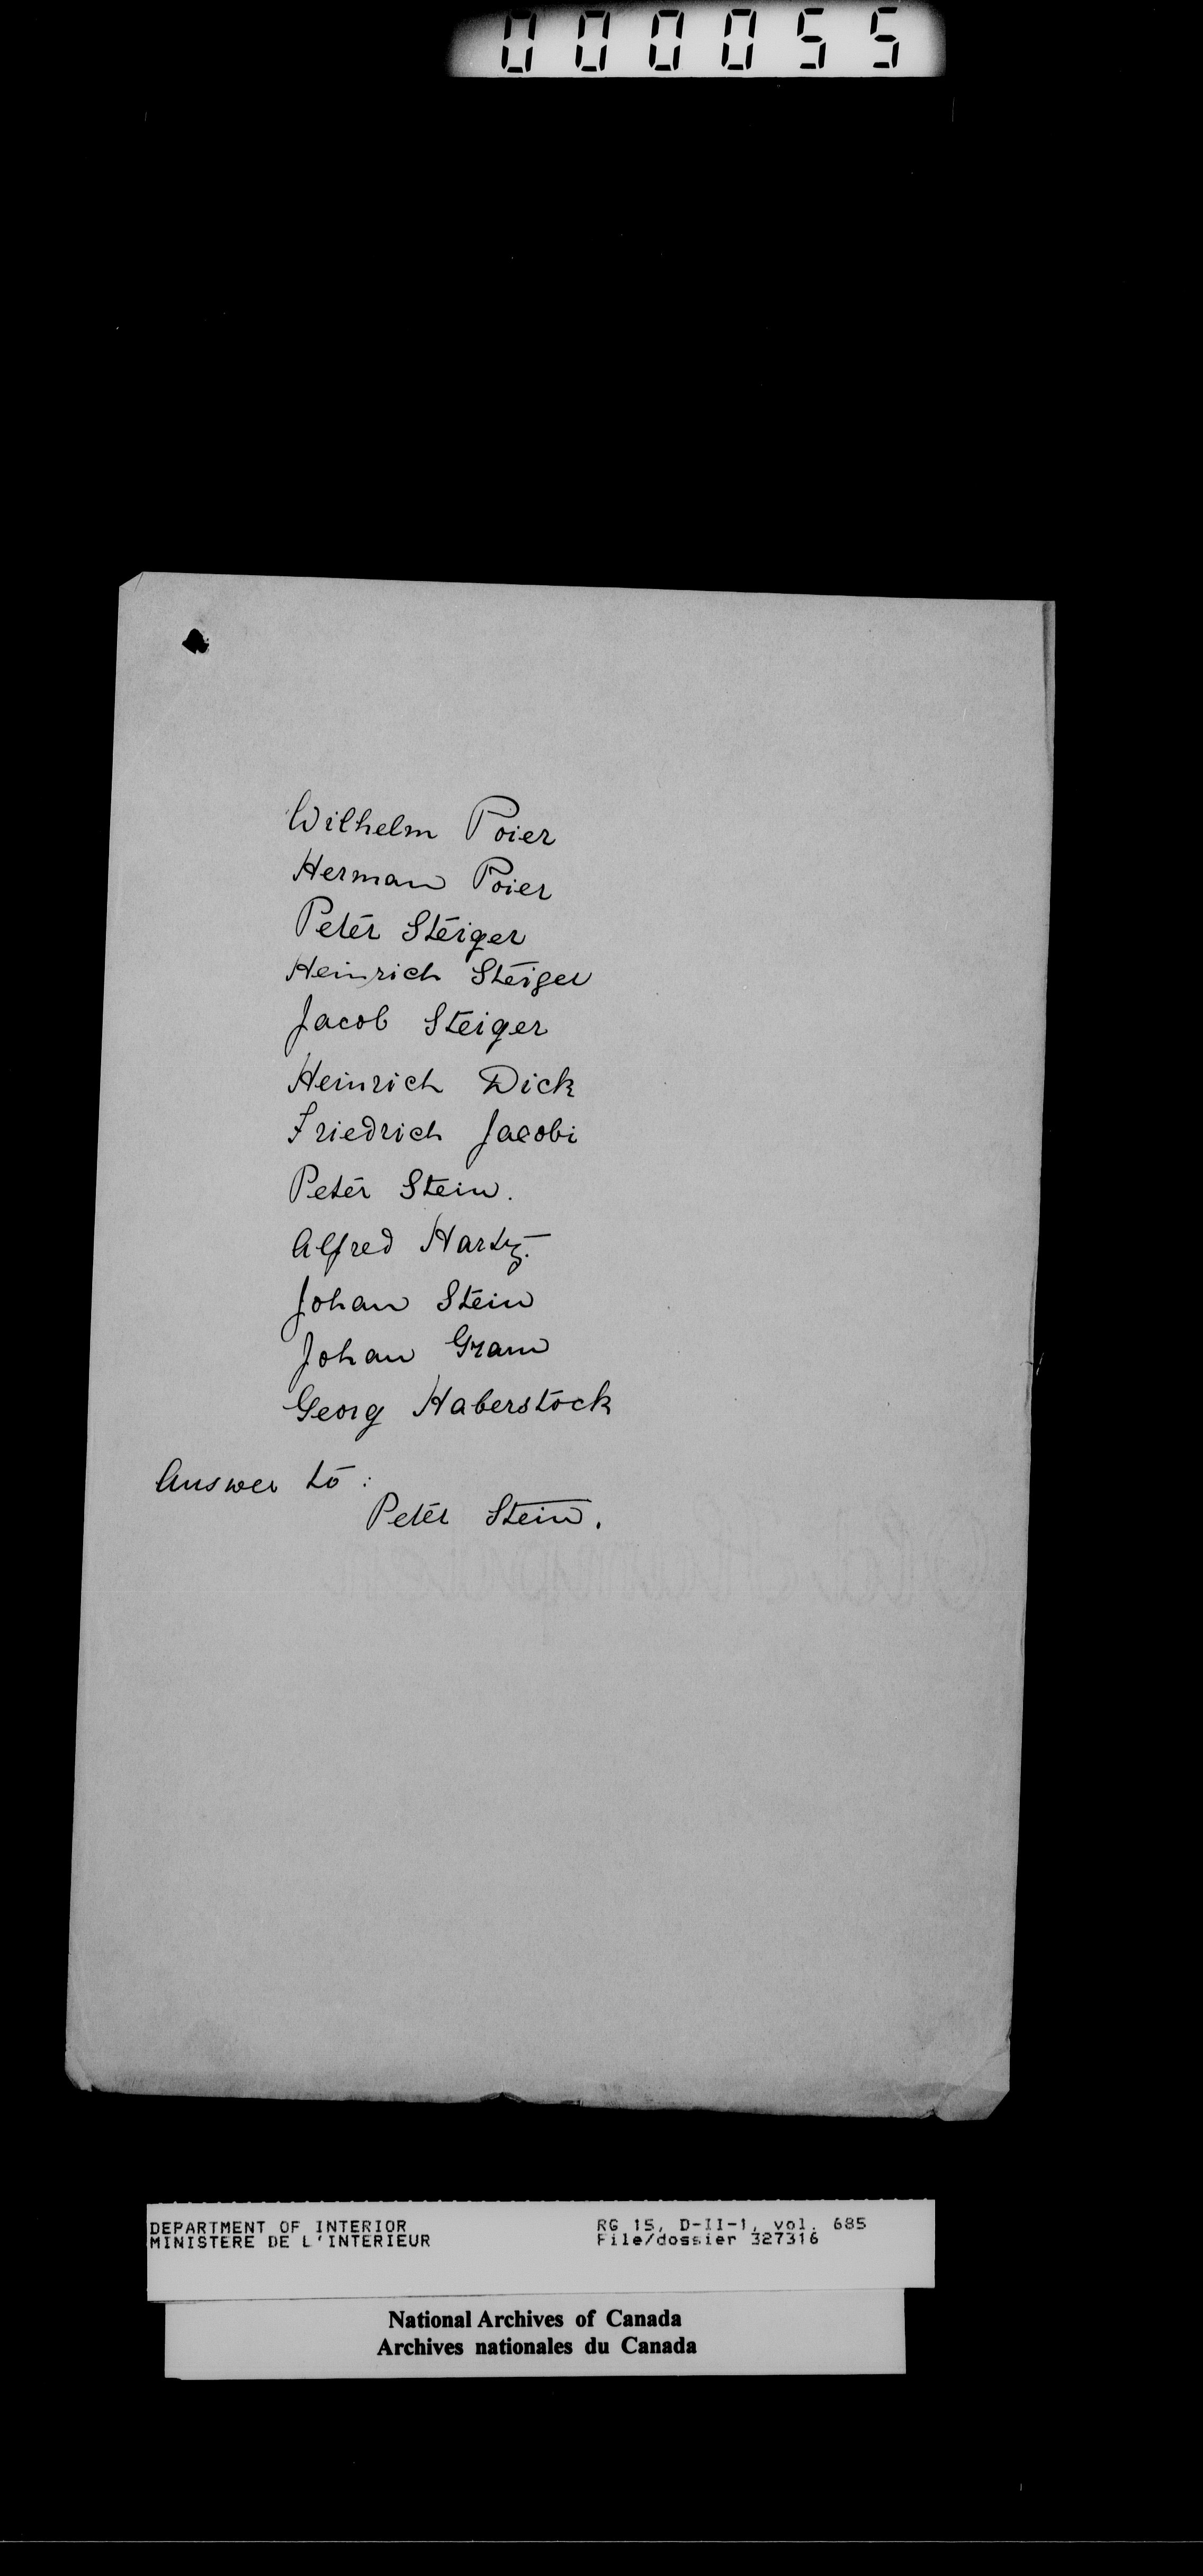 000055
Wilhelm Poier
Herman Poier
Peter Steiger
Heinrich Steiger
Jacob Steiger
Heinrich Dick
Friedrich Jacobi
Peter Stein.
Alfred Hartz.
Johan Stein
Johan Gram
Georg Haberstock
Answer to :
Peter Stein.
DEPARTMENT OF INTERIOR RG 15, D-II-1, vol. 685
MINISTERE DE L'INTERIEUR File/dossier 327316
National Archives of Canada
Archives nationales du Canada